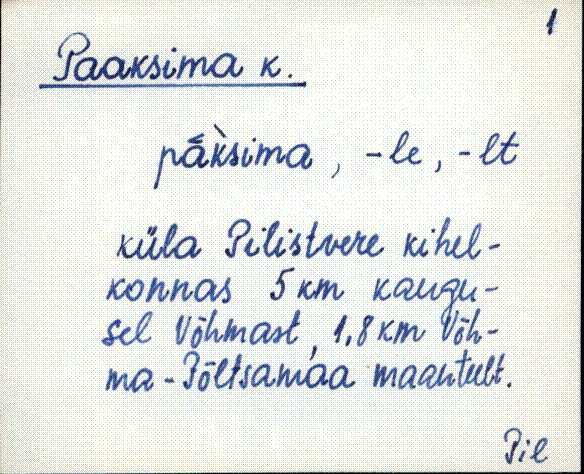 1
Paaksima k.
pāk̀sima, -le, -lt
küla Pilistvere kihel-
konnas 5 km kaugu-
sel Võhmast, 1,8 km Võh-
ma-Põltsamaa maanteelt.
Pil